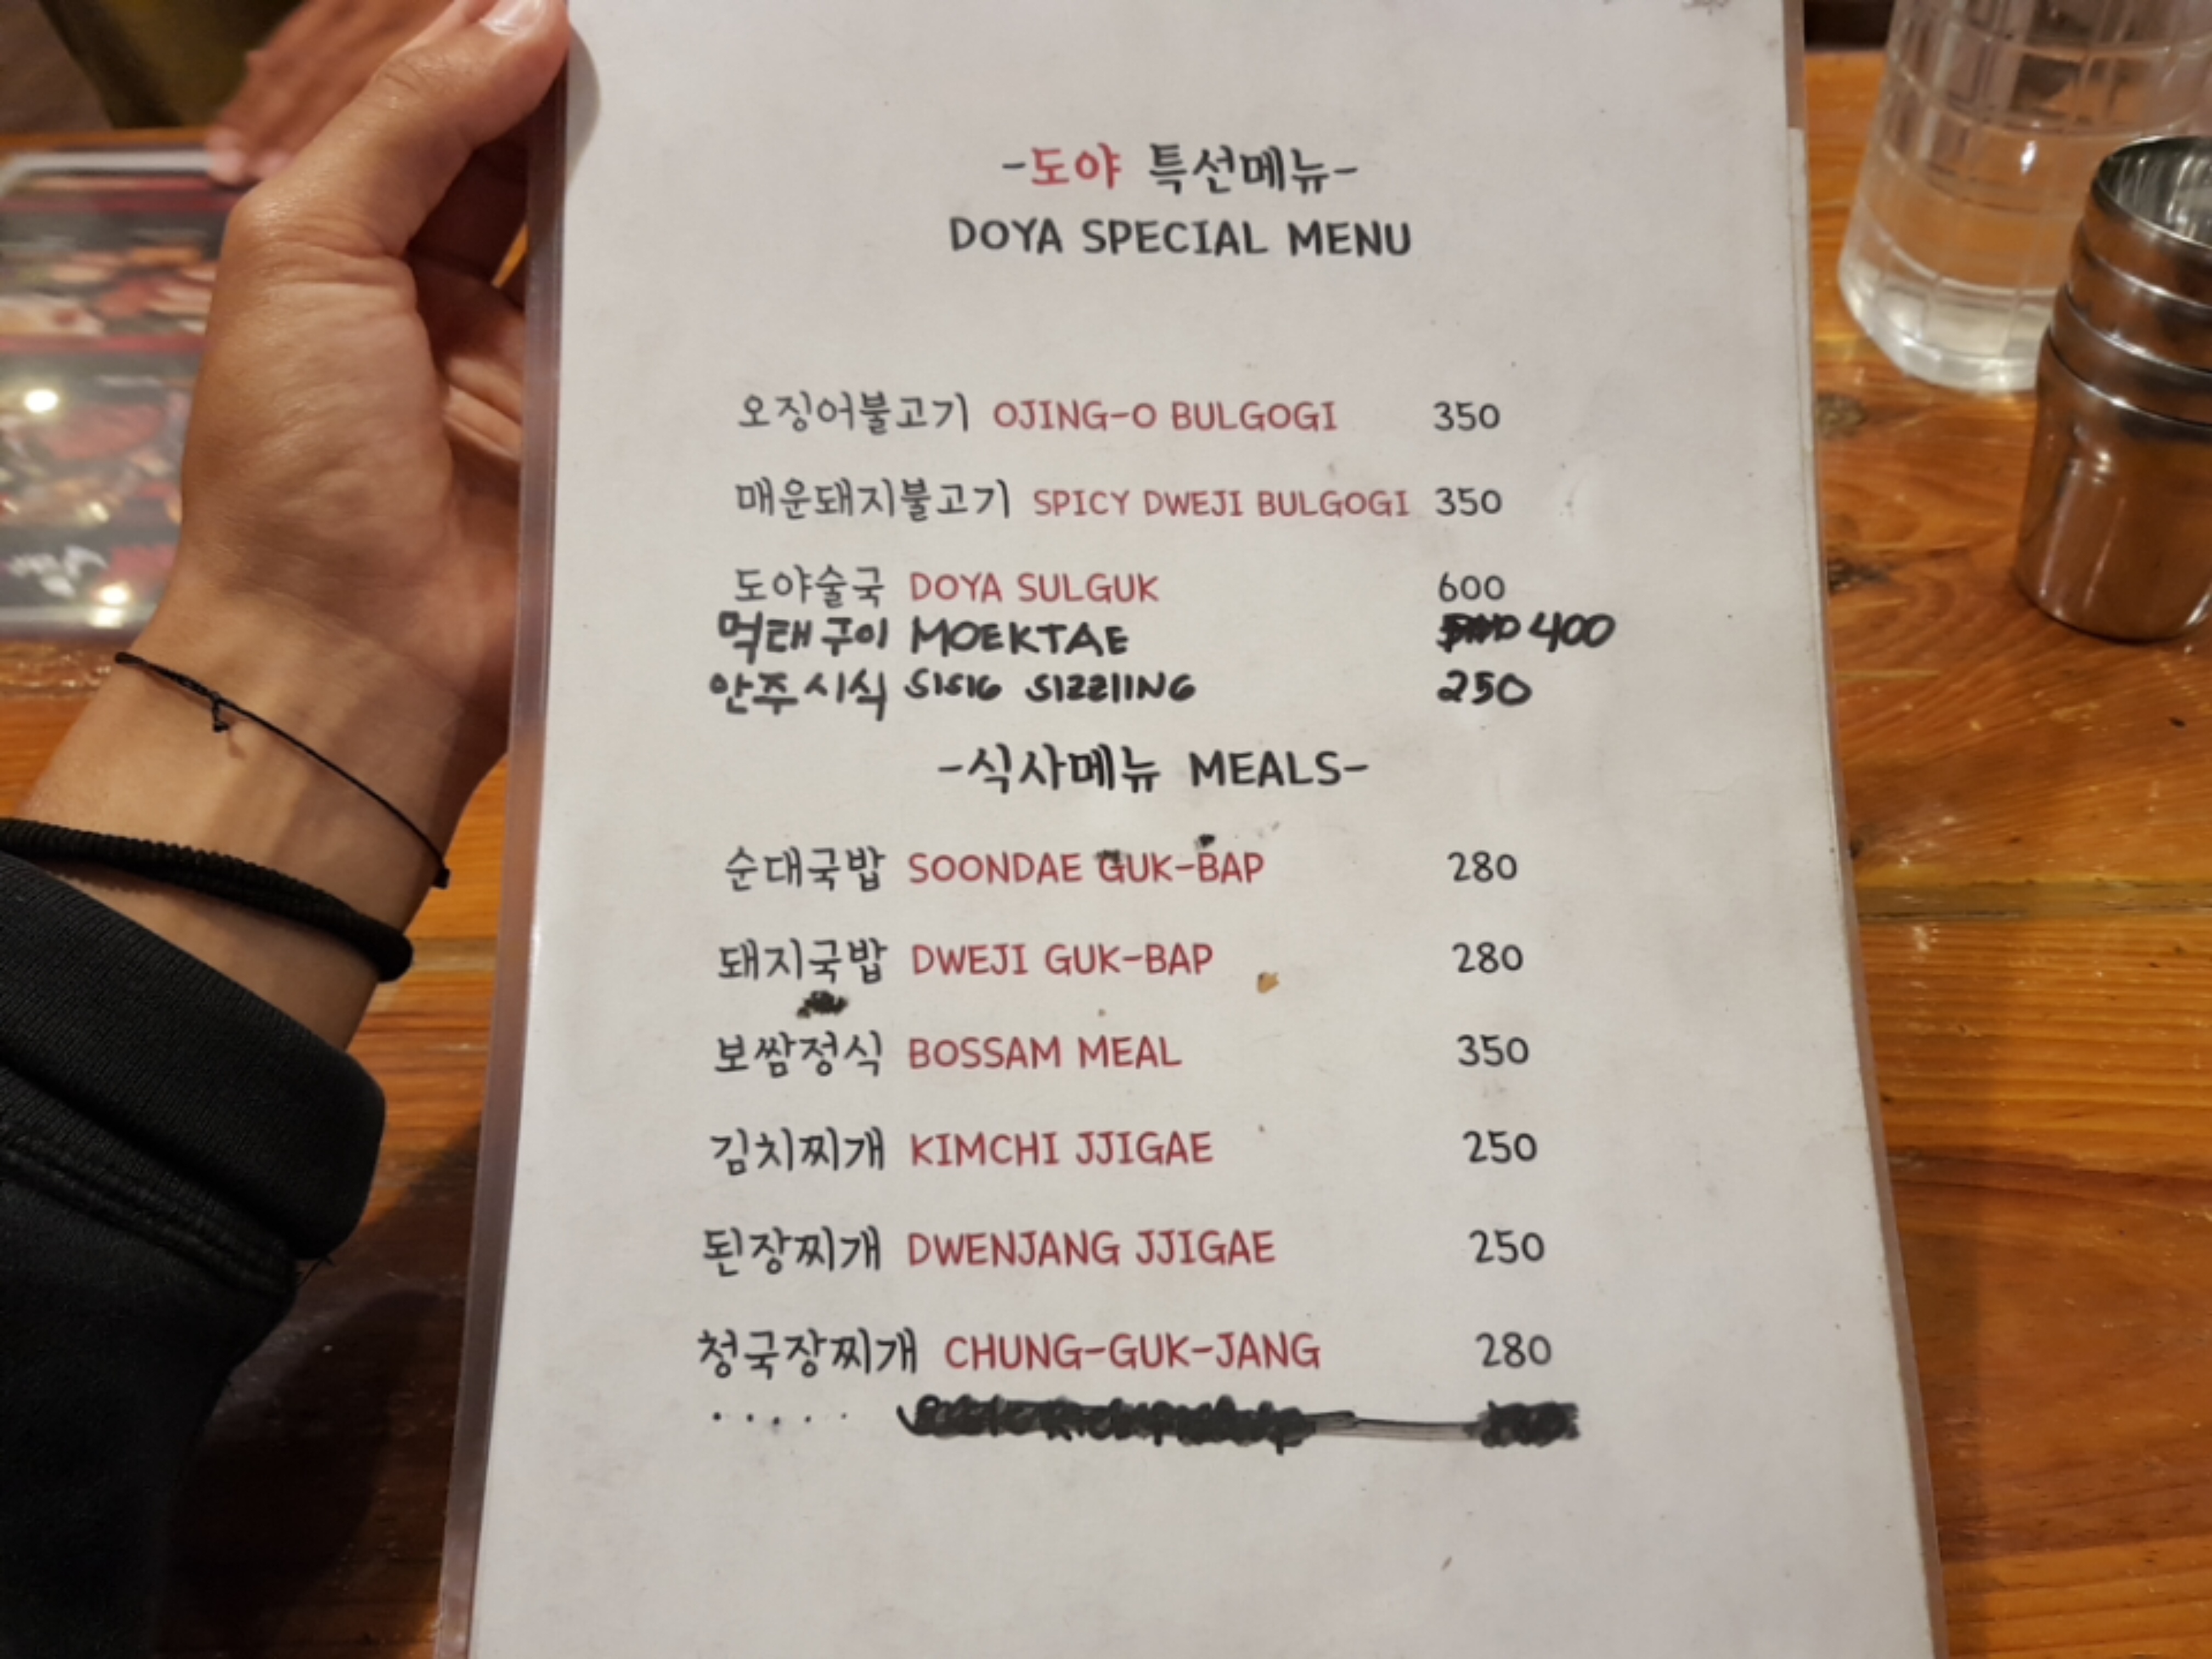 -도야 특선메뉴-
DOYA SPECIAL MENU
오징어불고기 OJING-O BULGOGI 350
매운돼지불고기 SPICY DWEJI BULGOGI 350
도야술국 DOYA SULGUK 600
먹태구이 MOEKTAE 400
안주시식 SISIG SIZZlING 250
-식사메뉴 MEALS-
순대국밥 SOONDAE GUK-BAP 280
돼지국밥 DWEJI GUK-BAP 280
보쌈정식 BOSSAM MEAL 350
김치찌개 KIMCHI JJIGAE 250
된장찌개 DWENJANG JJIGAE 250
청국장찌개 CHUNG-GUK-JANG 280